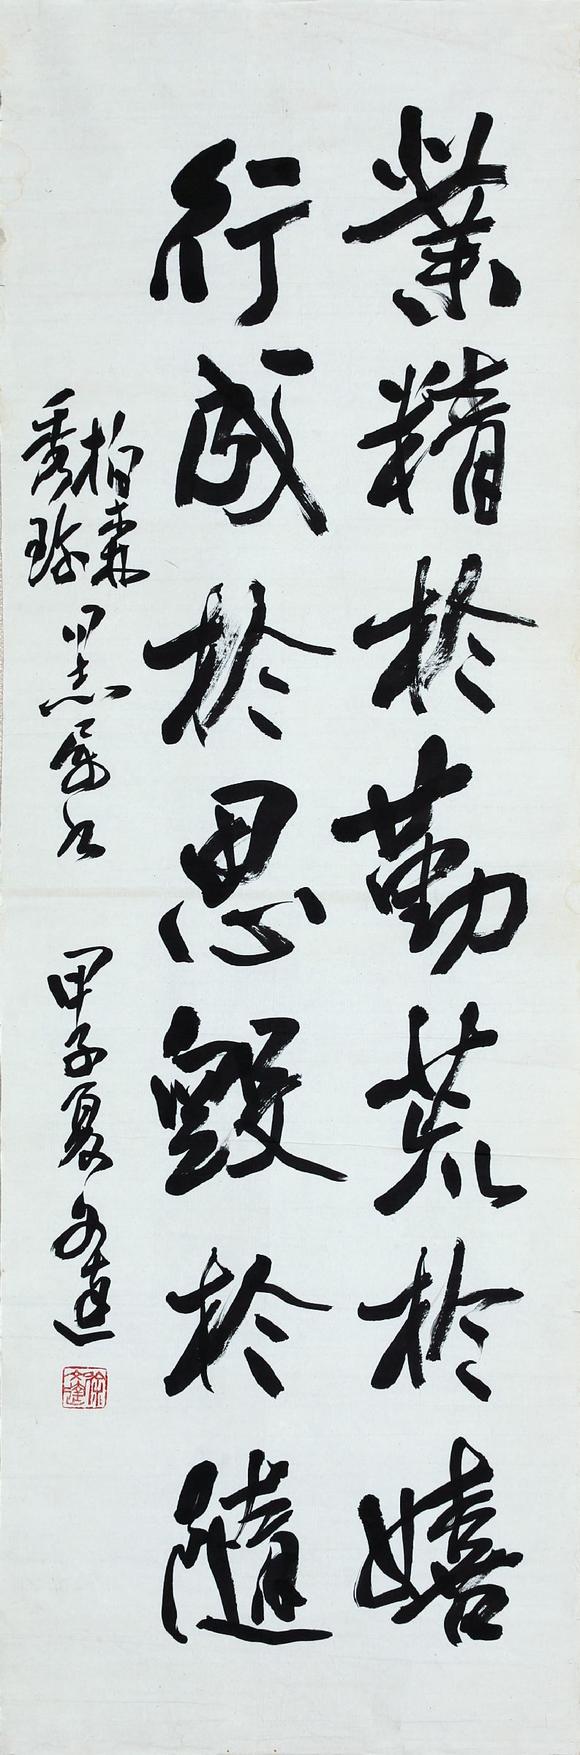 業精於勤荒於嬉
行成於思毀於隨
柏森
秀珍 同志屬書
甲子夏 文達
徐文達